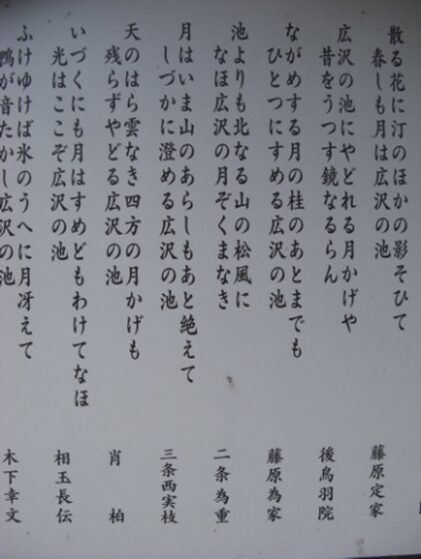 散る花に汀のほかの影そひて
春しも月は広沢の池
藤原定家
広沢の池にやどれる月かげや
昔をうつす鏡なるらん
後鳥羽院
ながめする月の桂のあとまでも
ひとつにすめる広沢の池
藤原為家
池よりも北なる山の松風に
なほ広沢の月ぞくまなき
二条為重
月はいま山のあらしもあと絶えて
しづかに澄める広沢の池
三条西実枝
天のはら雲なき四方の月かげも
残らずやどる広沢の池
肖柏
いづくにも月はすめどもわけてなほ
光はここぞ広沢の池
相玉長伝
ふけゆけば氷のうへに月冴えて
鴨が音たかし広沢の池
木下幸文